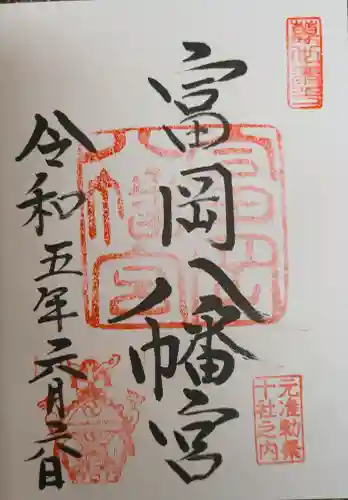 富岡八幡宮
元准勅祭
十社之内
令和五年六月六日